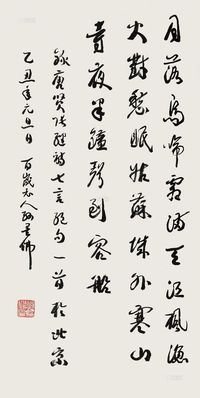 月落烏啼霜滿天江楓漁
火對愁眠姑蘇城外寒山
寺夜半鐘聲到客船
錄唐賢張繼詩七言絕句一首於北京
乙丑年元旦日 百歲老人孫墨佛